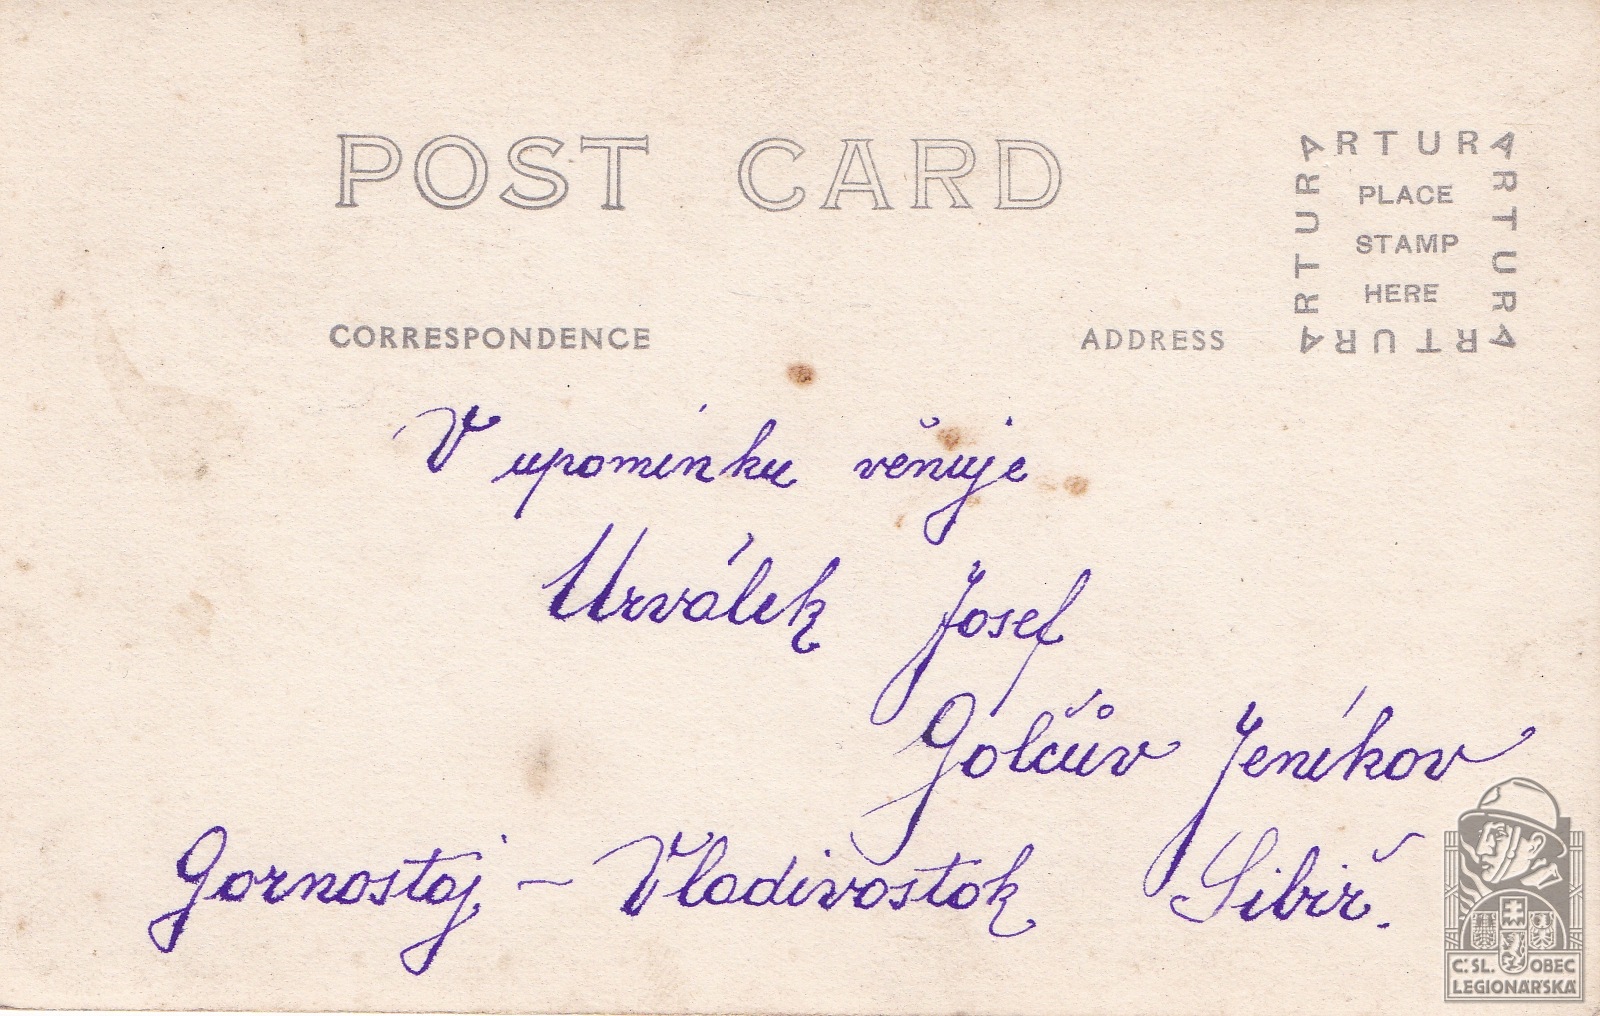 POST CARD
ARTURA
ARTURA
ARTURA
ARTURA
PLACE
STAMP
HERE
CORRESPONDENCE
ADDRESS
V upomínku věnuje
Urválek Josef
Golčův Jeníkov
Gornostaj – Vladivostok Sibiř.
Č.SL. OBEC
LEGIONÁŘSKÁ